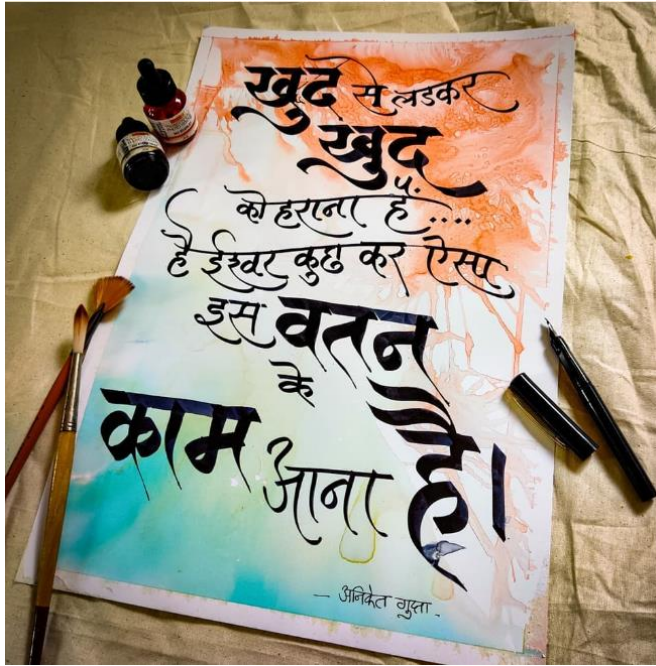 खुद से लडकर
खुद
को हराना हैं....
है ईश्वर कुछ कर ऐसा
इस वतन
के
काम आना है।
- अनिकेत गुप्ता -